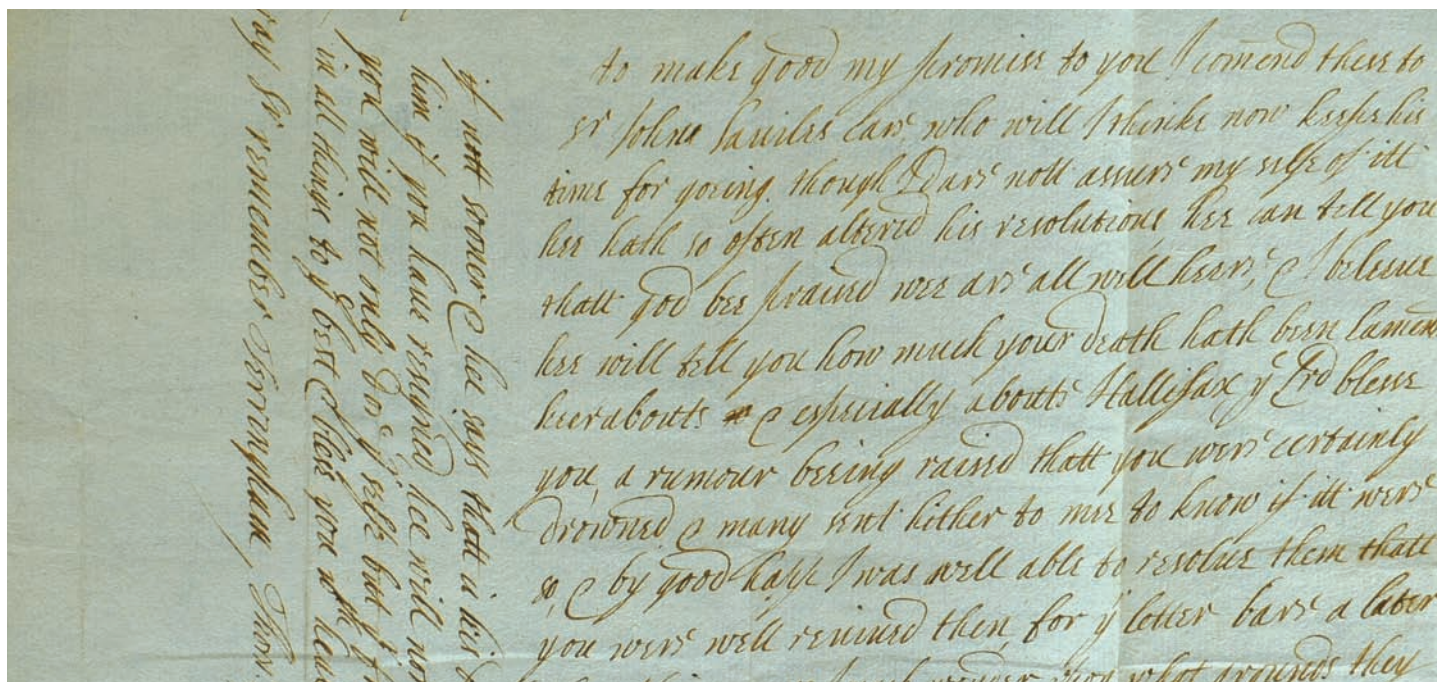 to make good my promise to you I comend these to
Sr John Saviles care who will I thinke now keepe his
time for goeing though I dare nott assure my selfe of itt
hee hath so often altered his resolutions hee can tell you
thatt god bee praised wee are all well heere, & I beleeue
hee will tell you how much your death hath been lamen
heerabouts & especially aboute Hallifax ye Lrd blesse
you, a rumour beeing raised thatt you were certainly
drowned & many sent hither to mee to know if itt were
so, & by good happ I was well able to resolue them thatt
you were well then, for ye letter bare a later
wonder what grounds they
if nott sooner & hee says thatt in his
him if you haue resigned hee will
you will not only for yr selfe but
in all things to ye best & bless you wth
Sr remember Terringham, Thom.